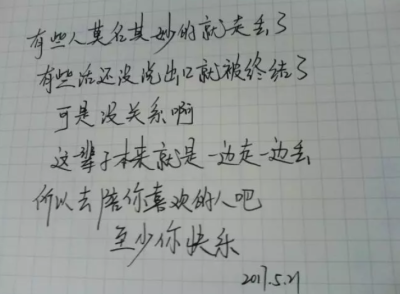 有些人莫名其妙的就走丢了
有些话还没说出口就被终结了
可是没关系啊
这辈子本来就是一边走一边丢
所以去陪你喜欢的人吧
至少你快乐
2017.5.21